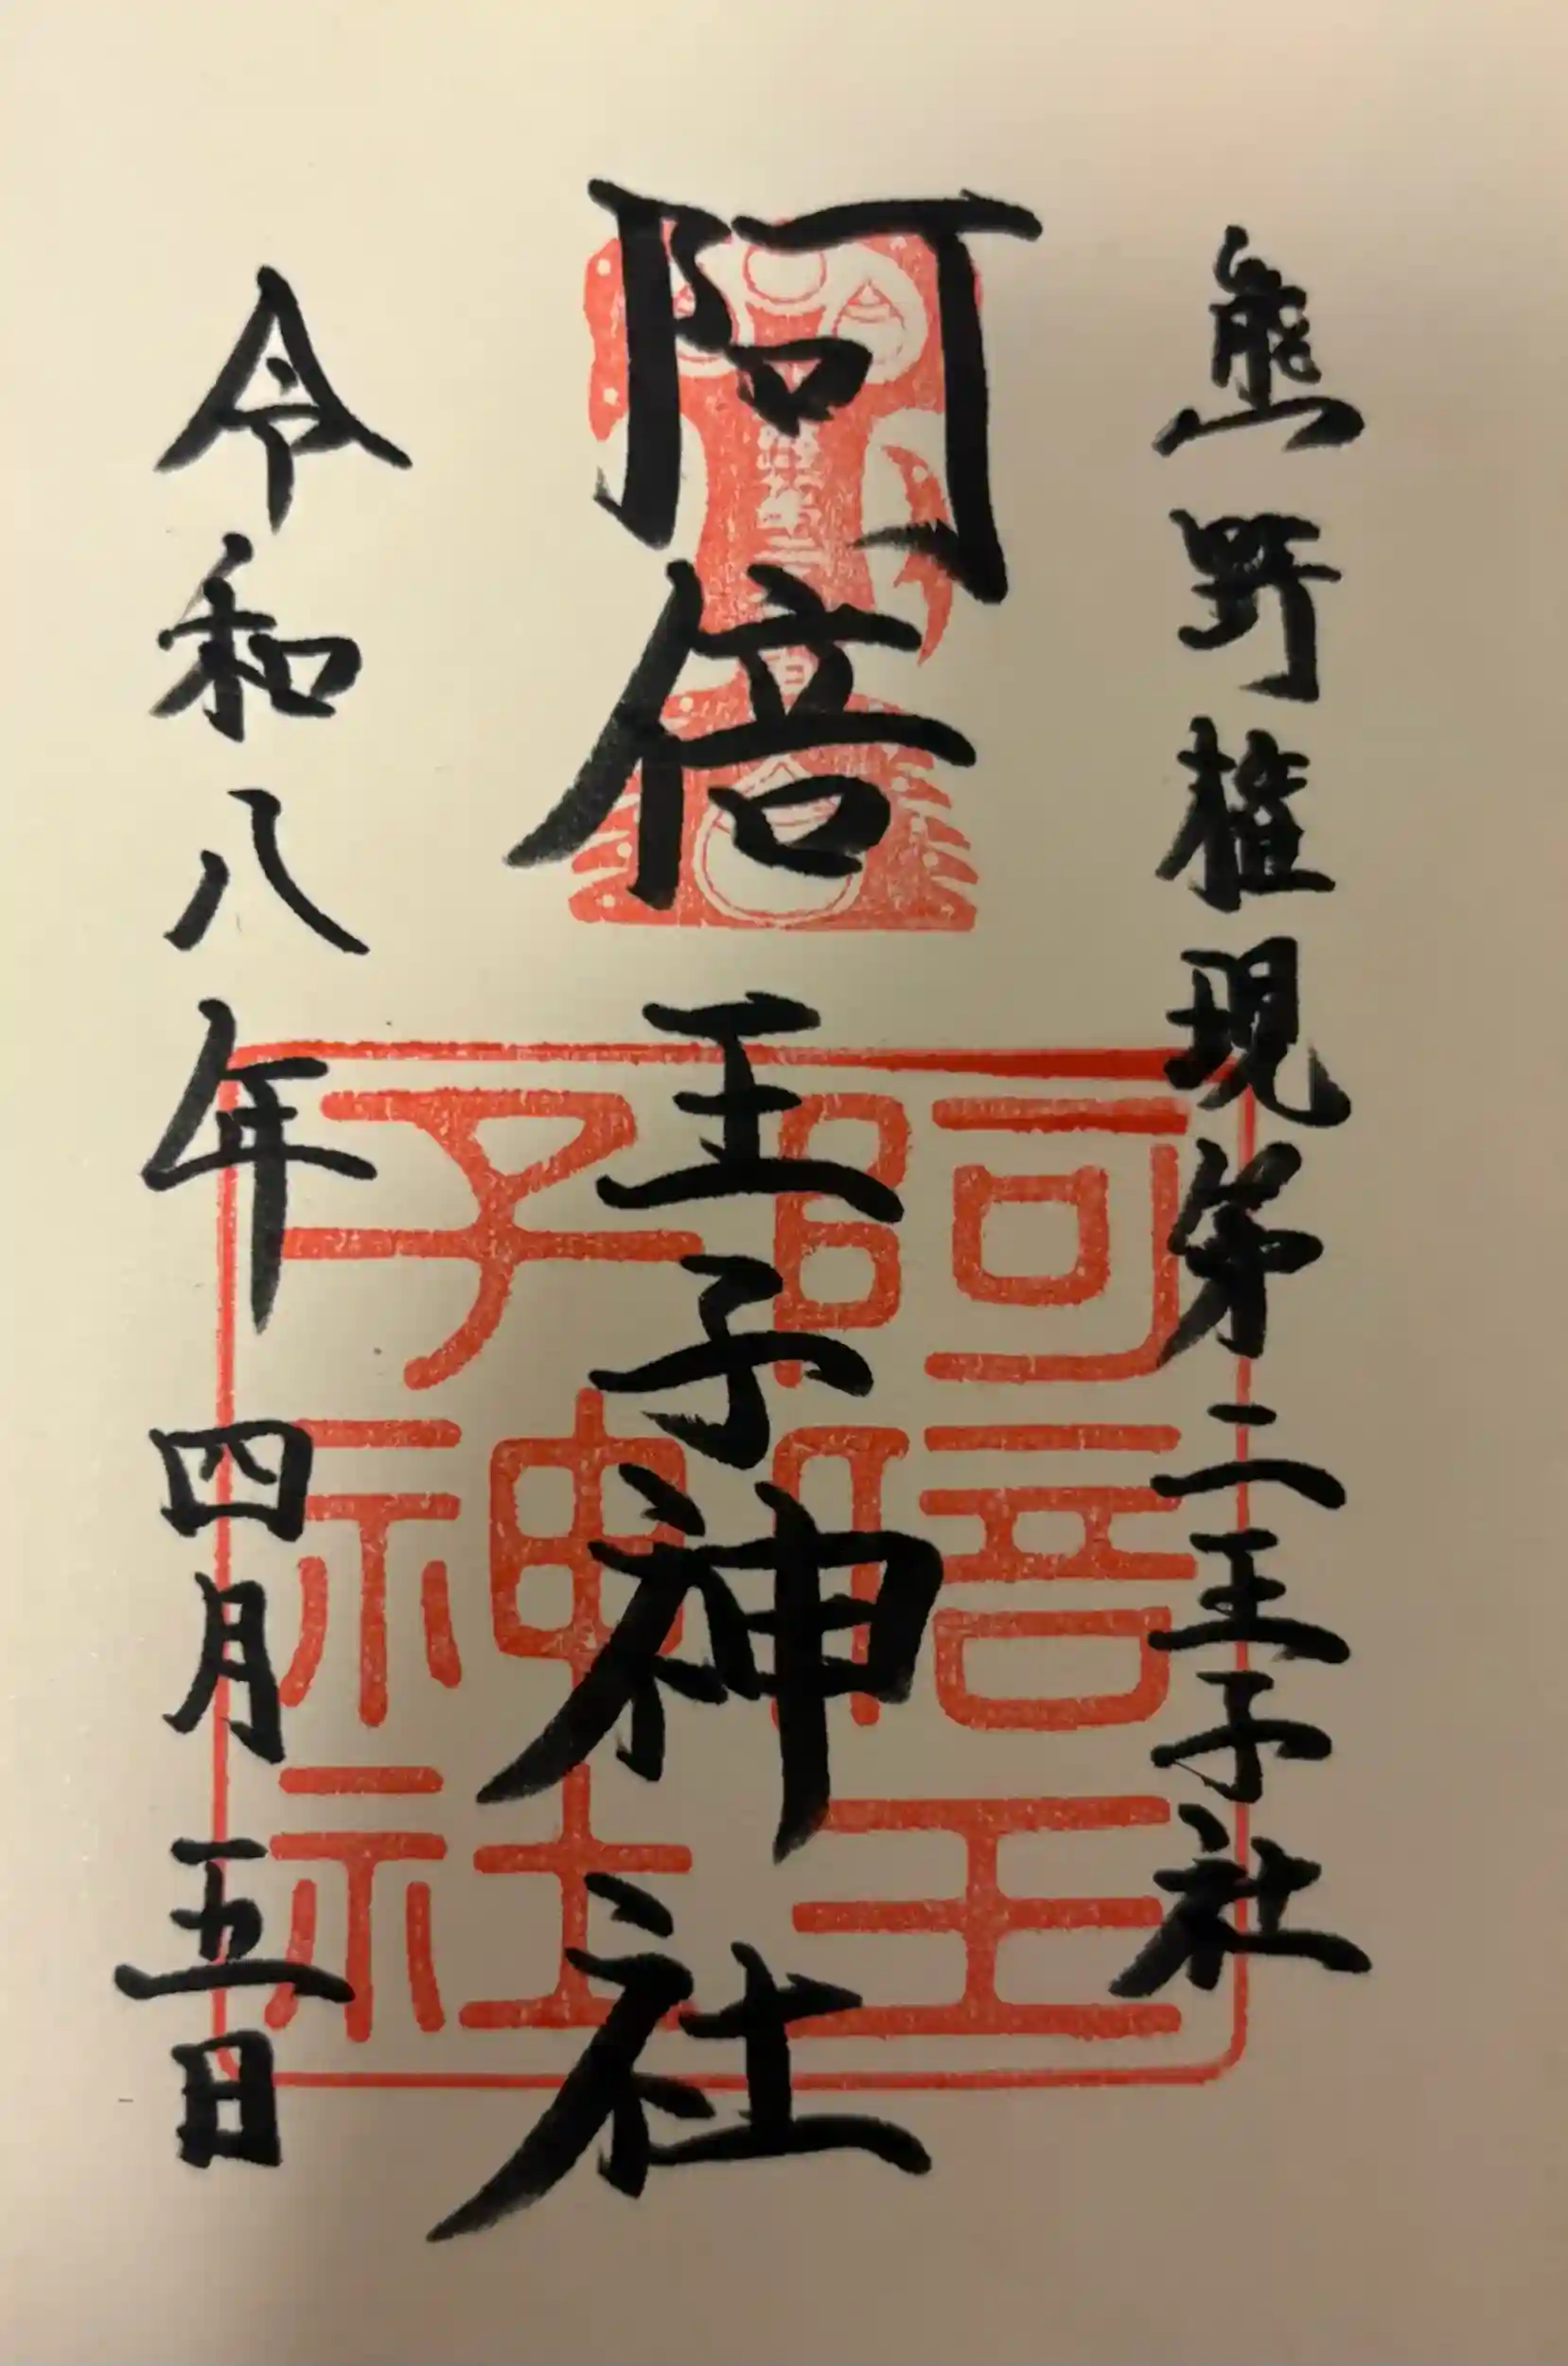 熊野権現第二王子社
阿倍王子神社
阿倍王子神社
令和八年四月五日